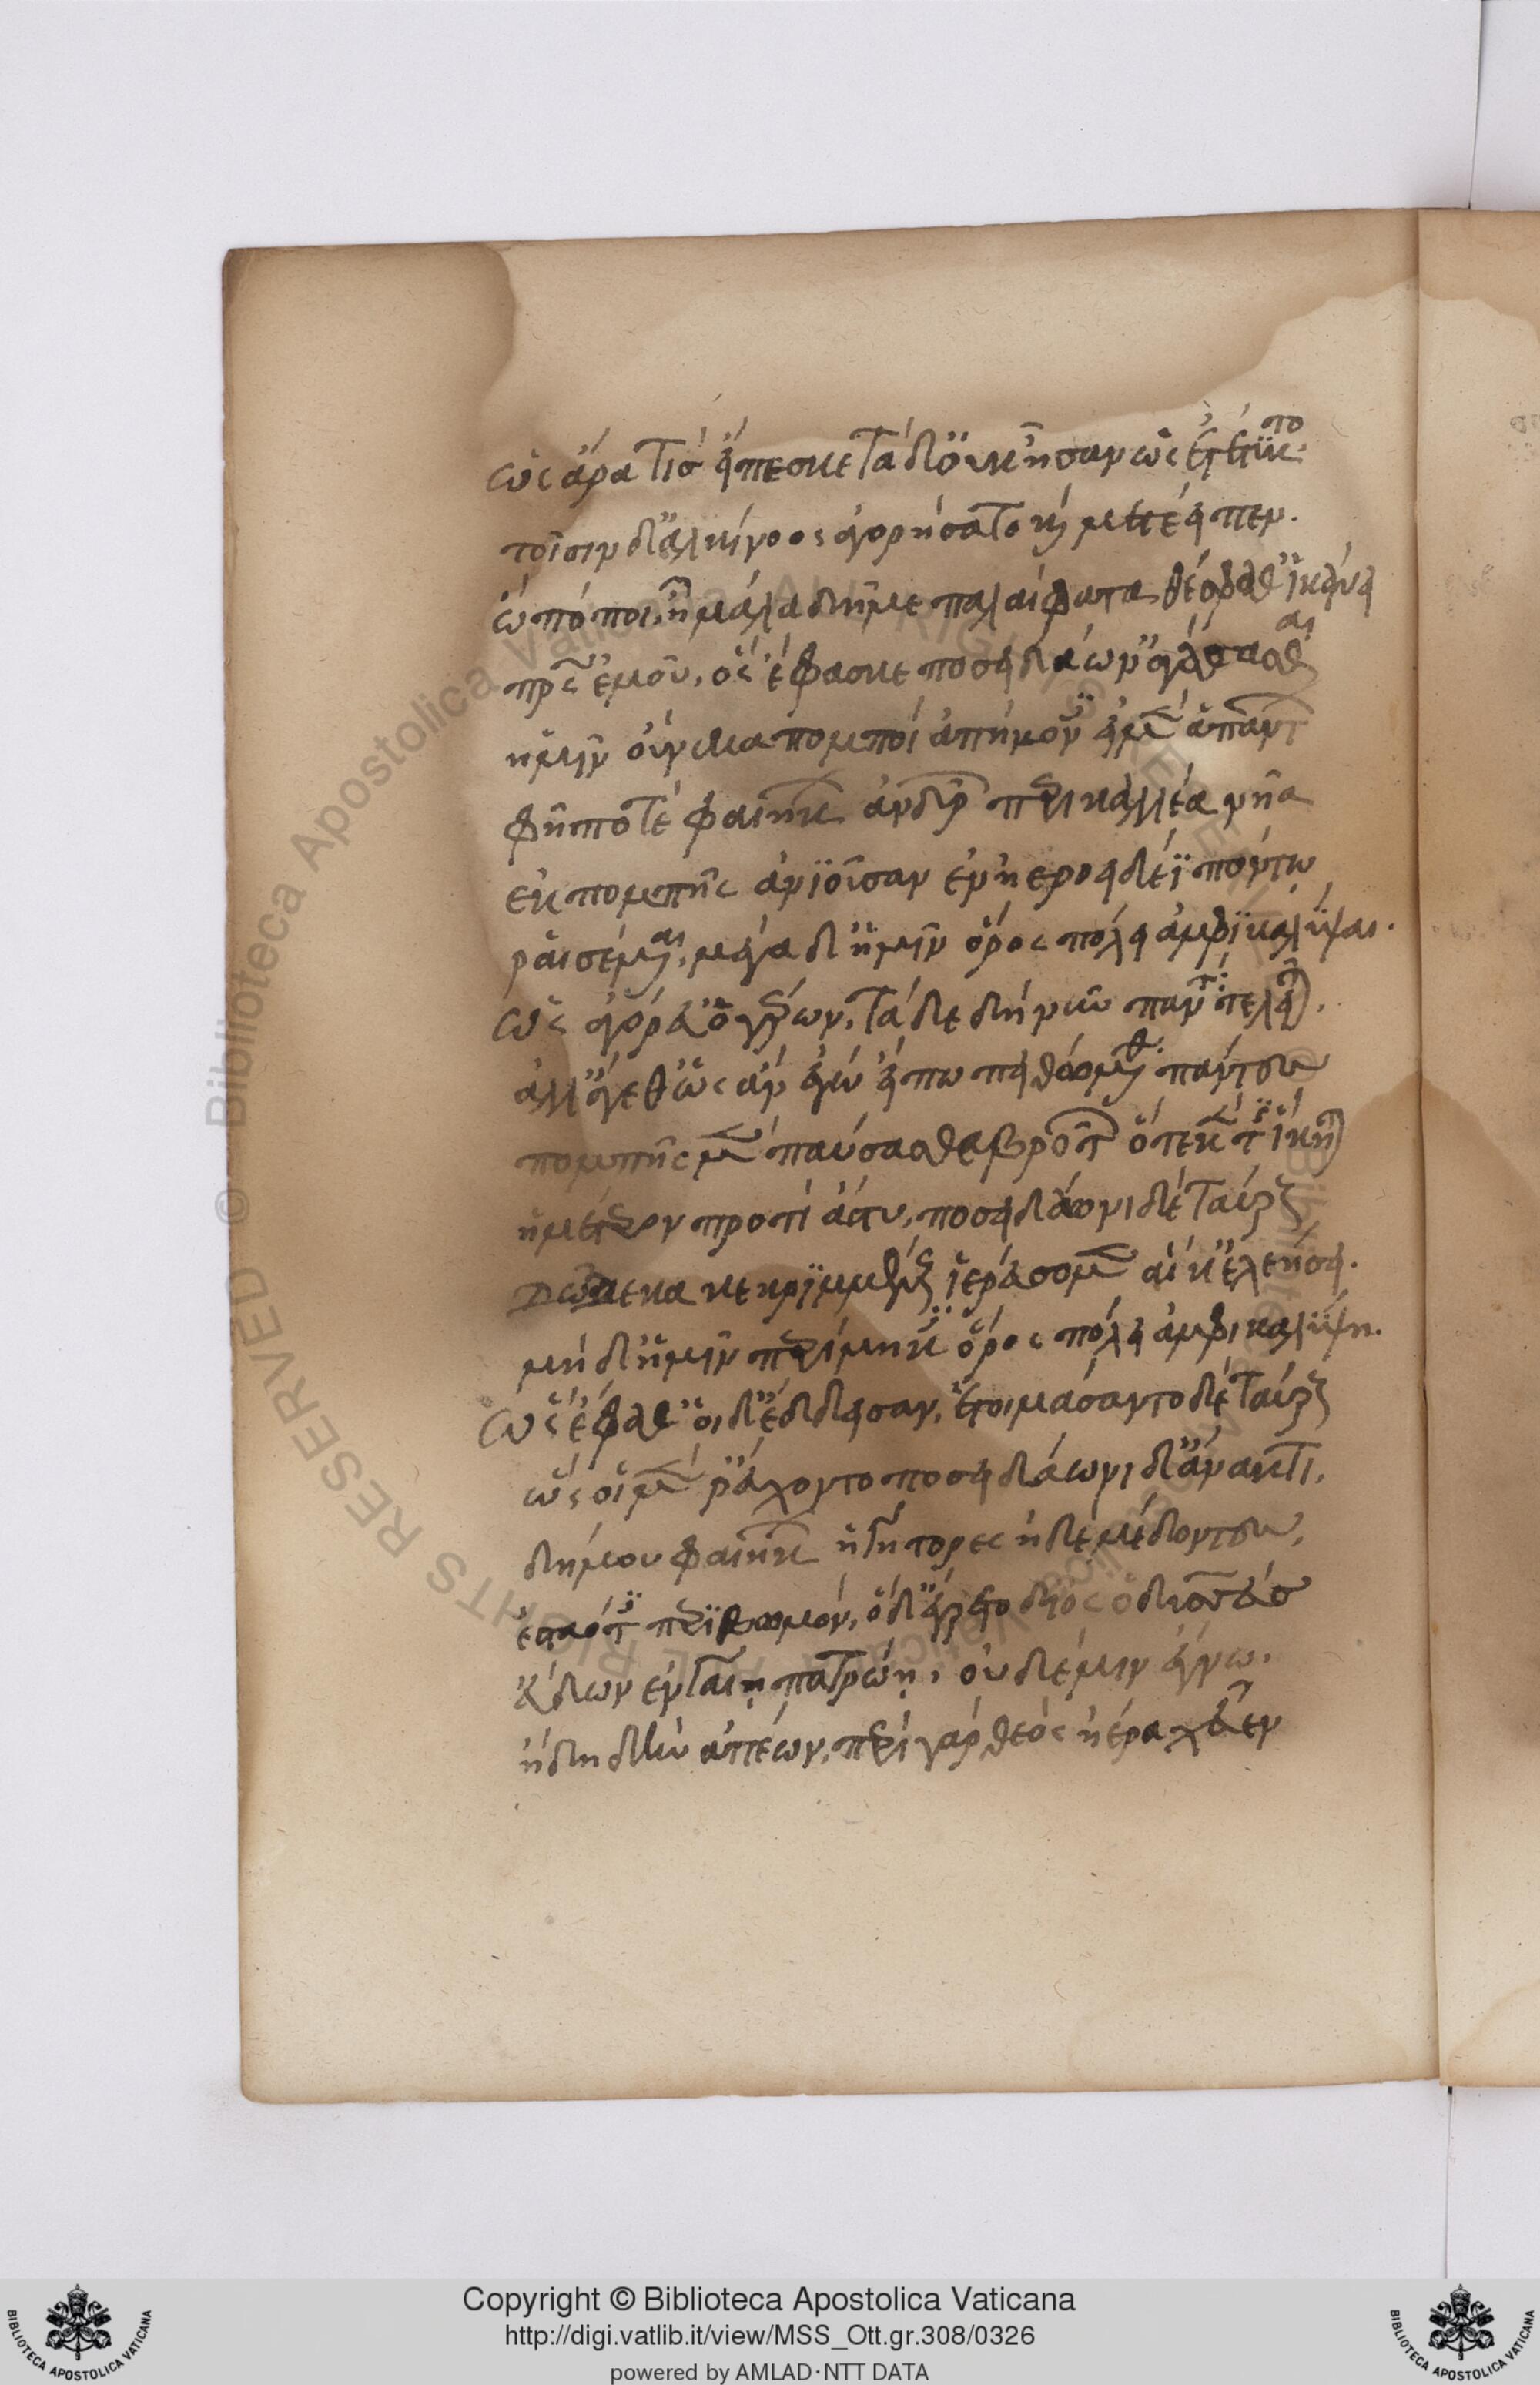 ὣς ἄρα τίς εἴπεσκε τὰ δ' οὐκ ἴσαν ὡς ἐτέτυκτο
τοῖσιν δ' ἀλκίνοος ἀγορήσατο καὶ μετέειπεν.
ὦ πόποι, ἦ μάλα δή με παλαίφατα θέσφαθ' ἱκάνει
πατρὸς ἐμοῦ, ὃς ἔφασκε ποσειδάων' ἀγάσασθαι
ἡμῖν οὕνεκα πομποί ἀπήμονές εἰμεν ἁπάντων
φῆ ποτέ φαιήκων ἀνδρῶν περικαλλέα νῆα
ἐκ πομπῆς ἀνιοῦσαν ἐν ἠεροειδέϊ πόντω
ῥαισέμεναι, μέγα δ' ἡμῖν ὄρος πόλει ἀμφικαλύψαι.
ὣς ἀγόρευ' ὁ γέρων, τὰ δὲ δὴ νῦν πάντα τελεῖται.
ἀλλ' ἄγεθ' ὡς ἂν ἐγὼν εἴπω πειθώμεθα πάντες
πομπῆς μὲν παύσασθε βροτῶν ὅτε κέν τις ἵκηται
ἡμέτερον προτὶ ἄστυ, ποσειδάωνι δὲ ταύρους
δώδεκα κεκριμένους ἱερεύσομεν αἴ κ' ἐλεήσει.
μηδ' ἡμῖν περίμηκες ὄρος πόλει ἀμφικαλύψη.
ὣς ἔφαθ' οἱ δ' ἔδδεισαν, ἑτοιμάσαντο δὲ ταύρους
ὣς οἱ μέν ῥ' εὔχοντο ποσειδάωνι ἄνακτι,
δήμου φαιήκων ἡγήτορες ἠδὲ μέδοντες,
ἑσταότες περὶ βωμόν, ὁ δ' ἔγρετο δῖος ὀδυσσεύς
εὕδων ἐν γαίῃ πατρώῃ, οὐδέ μιν ἔγνω.
ἤδη δὴν ἀπεών, περὶ γὰρ θεὸς ἠέρα χεῦεν
Copyright © Biblioteca Apostolica Vaticana
http://digi.vatlib.it/view/MSS_Ott.gr.308/0326
powered by AMLAD·NTT DATA